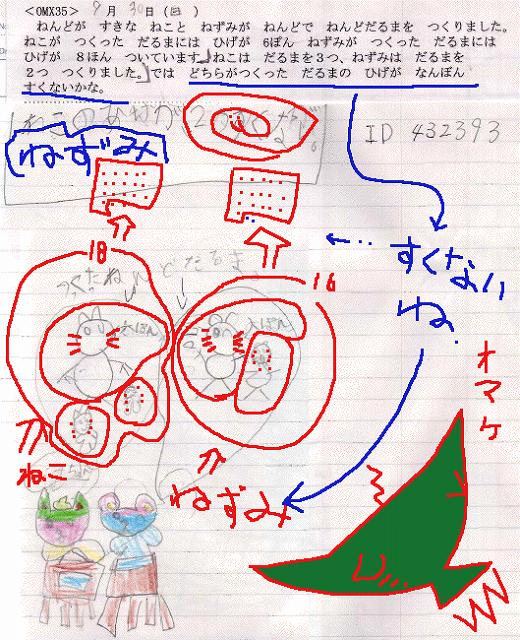 <OMX35> 9月30日(日)
ねんどが すきな ねこと ねずみが ねんどで ねんどだるまを つくりました。
ねこが つくった だるまには ひげが 6ぽん ねずみが つくった だるまには
ひげが 8ほん ついています。ねこは だるまを3つ、ねずみは だるまを
2つ つくりました。では どちらがつくった だるまの ひげが なんぼん
すくないかな。
ねこのあなが2
ID 432393
ねずみ
すくない
ね。
18
16
つくたねんどだるま
6ぽん
オマケ
ねこ
ねずみ